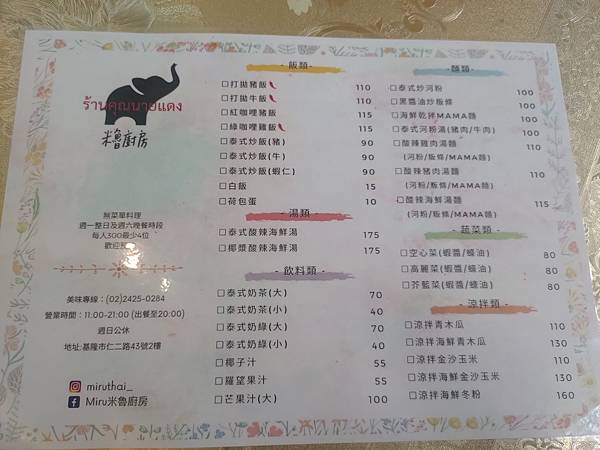 ร้านคุณนายแดง
米魯廚房
無菜單料理
週一整日及週六晚餐時段
每人300最少4位
歡迎預
美味專線：(02)2425-0284
營業時間：11:00-21:00 (出餐至20:00)
週日公休
地址:基隆市仁二路43號2樓
miruthai_
Miru米魯廚房
- 飯類 -
□打拋豬飯 110
□打拋牛飯 110
□紅咖哩豬飯 115
□綠咖哩雞飯 115
□泰式炒飯(豬) 90
□泰式炒飯(牛) 90
□泰式炒飯(蝦仁) 90
□白飯 15
□荷包蛋 10
- 湯類 -
□泰式酸辣海鮮湯 175
□椰漿酸辣海鮮湯 175
- 飲料類 -
□泰式奶茶(大) 70
□泰式奶茶(小) 40
□泰式奶綠(大) 70
□泰式奶綠(小) 40
□椰子汁 55
□羅望果汁 55
□芒果汁(大) 100
- 麵類 -
□泰式炒河粉 100
□黑醬油炒粄條 100
□海鮮乾拌MAMA麵 100
□泰式河粉湯(豬肉/牛肉) 100
□酸辣雞肉湯麵 110
(河粉/粄條/MAMA麵)
□酸辣豬肉湯麵 110
(河粉/粄條/MAMA麵)
□酸辣海鮮湯麵 115
(河粉/粄條/MAMA麵)
- 蔬菜類 -
□空心菜(蝦醬/蠔油) 80
□高麗菜(蝦醬/蠔油) 80
□芥藍菜(蝦醬/蠔油) 80
- 涼拌類 -
□涼拌青木瓜 110
□涼拌海鮮青木瓜 130
□涼拌金沙玉米 110
□涼拌海鮮金沙玉米 130
□涼拌海鮮冬粉 160